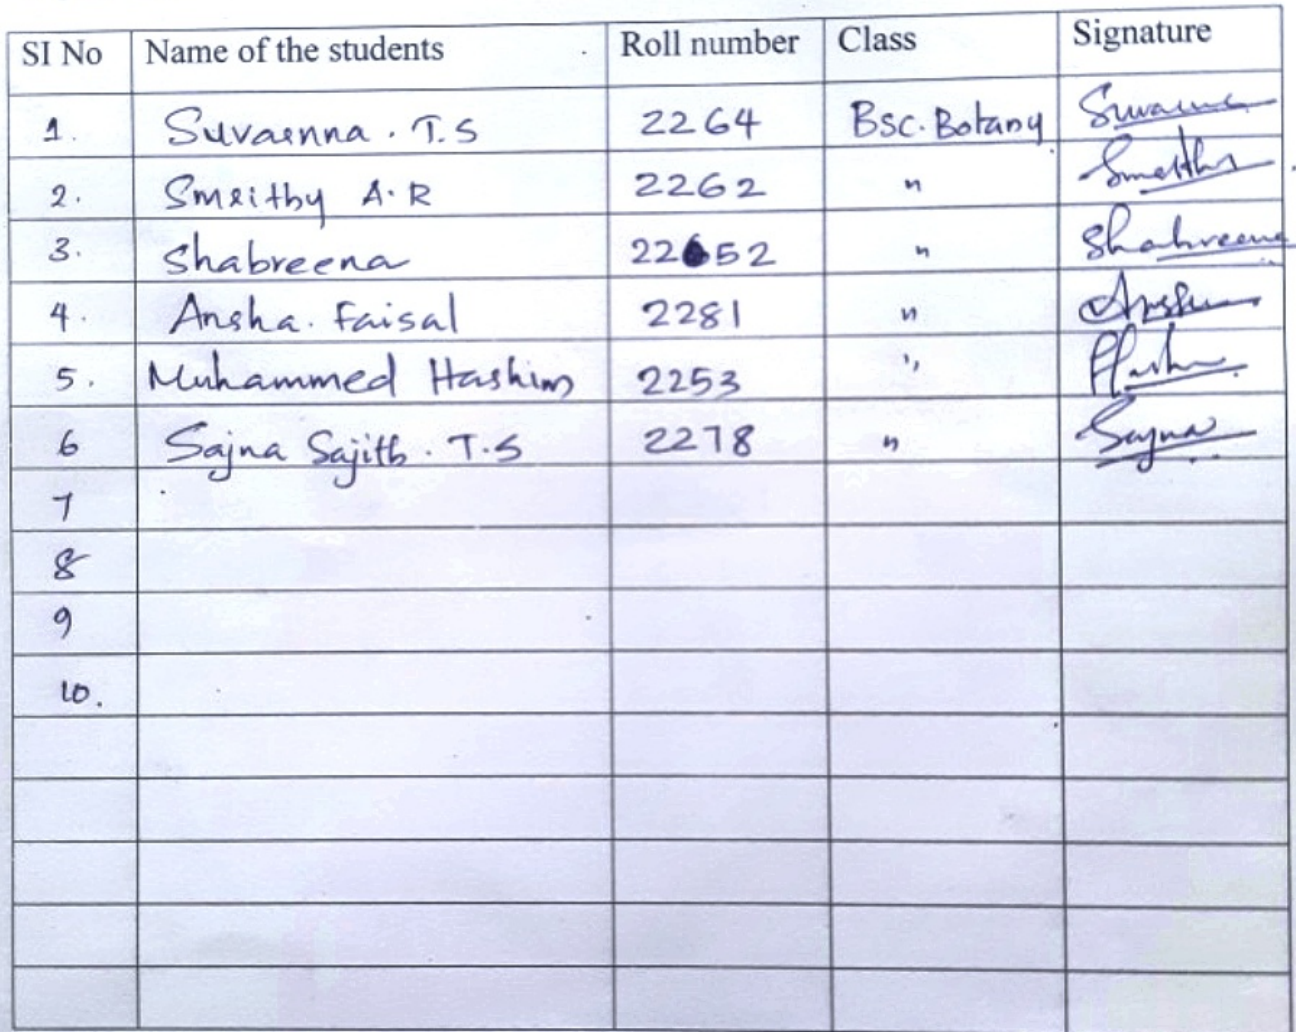 SI No Name of the students Roll number Class Signature
1. Suvarnna . T.S 2264 Bsc. Botany Suvarna
2. Smrithy A.R 2262 "
3. Shabreena 2252 " Shabreena
4. Ansha. Faisal 2281 "
5. Muhammed Hashim 2253 "
6 Sajna Sajith . T.S 2278 " Sajna
7
8
9
10.